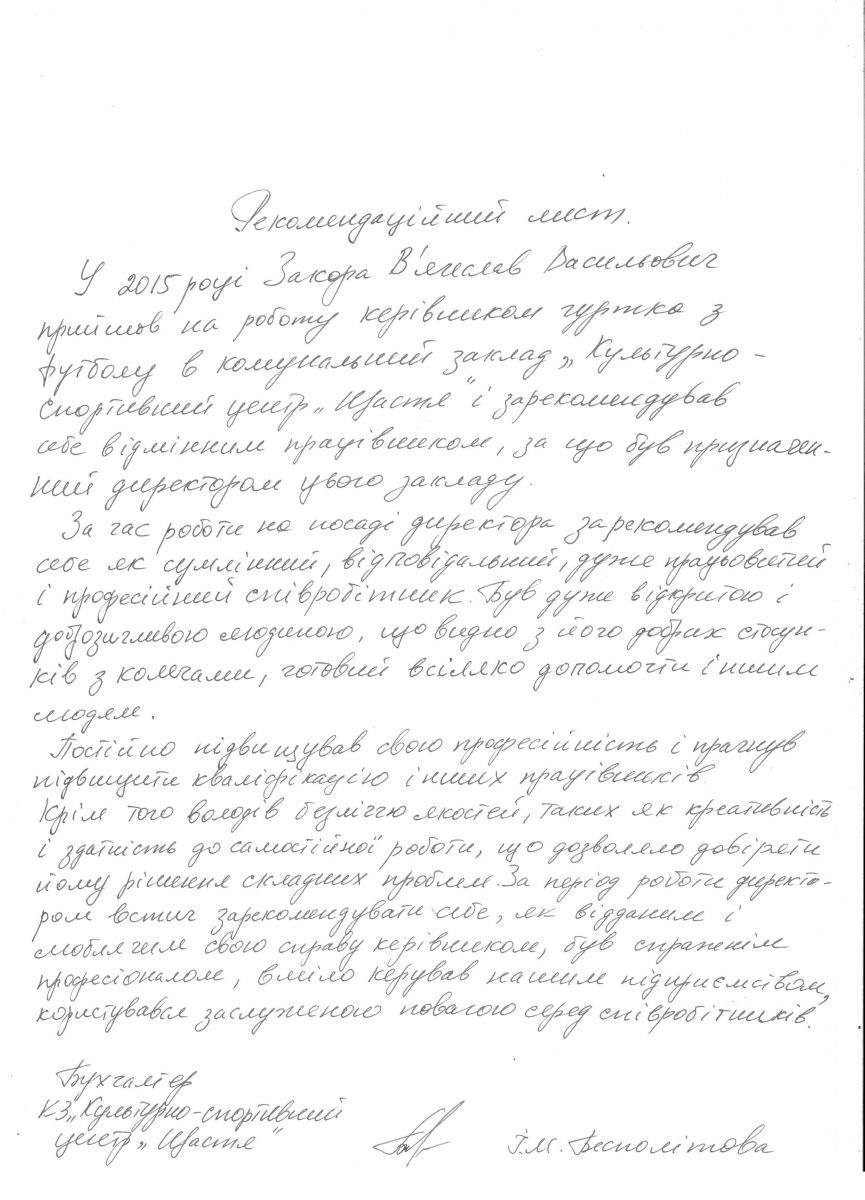 Рекомендаційний лист.
У 2015 році Закора В'ячеслав Васильович
прийшов на роботу керівником гуртка з
футболу в комунальний заклад „Культурно-
спортивний центр „Щастя" і зарекомендував
себе відмінним працівником, за що був призначен-
ний директором цього закладу.
За час роботи на посаді директора зарекомендував
себе як сумлінний, відповідальний, дуже працьовитий
і професійний співробітник. Був дуже відкритою і
доброзичливою людиною, що видно з його добрих стосун-
ків з колегами, готовий всіляко допомогти іншим
людям.
Постійно підвищував свою професійність і прагнув
підвищити кваліфікацію інших працівників.
Крім того володів безліччю якостей, таких як креативність
і здатність до самостійної роботи, що дозволяло довіряти
йому рішення складних проблем. За період роботи директо-
ром встиг зарекомендувати себе, як відданим і
люблячим свою справу керівником, був справжнім
професіоналом, вміло керував нашим підприємством,
користувався заслуженою повагою серед співробітників.
Бухгалтер
КЗ „Культурно-спортивний
центр „Щастя"
І.М. Бесполітова